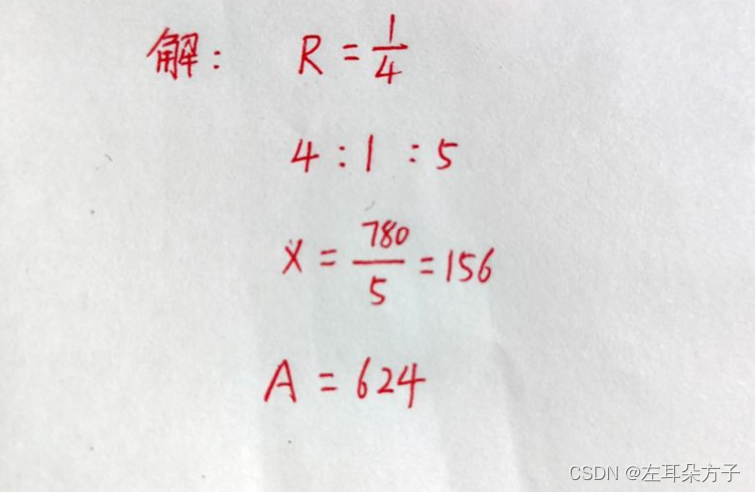 解： R = 1/4
4 : 1 : 5
x = 780/5 = 156
A = 624
CSDN @左耳朵方子